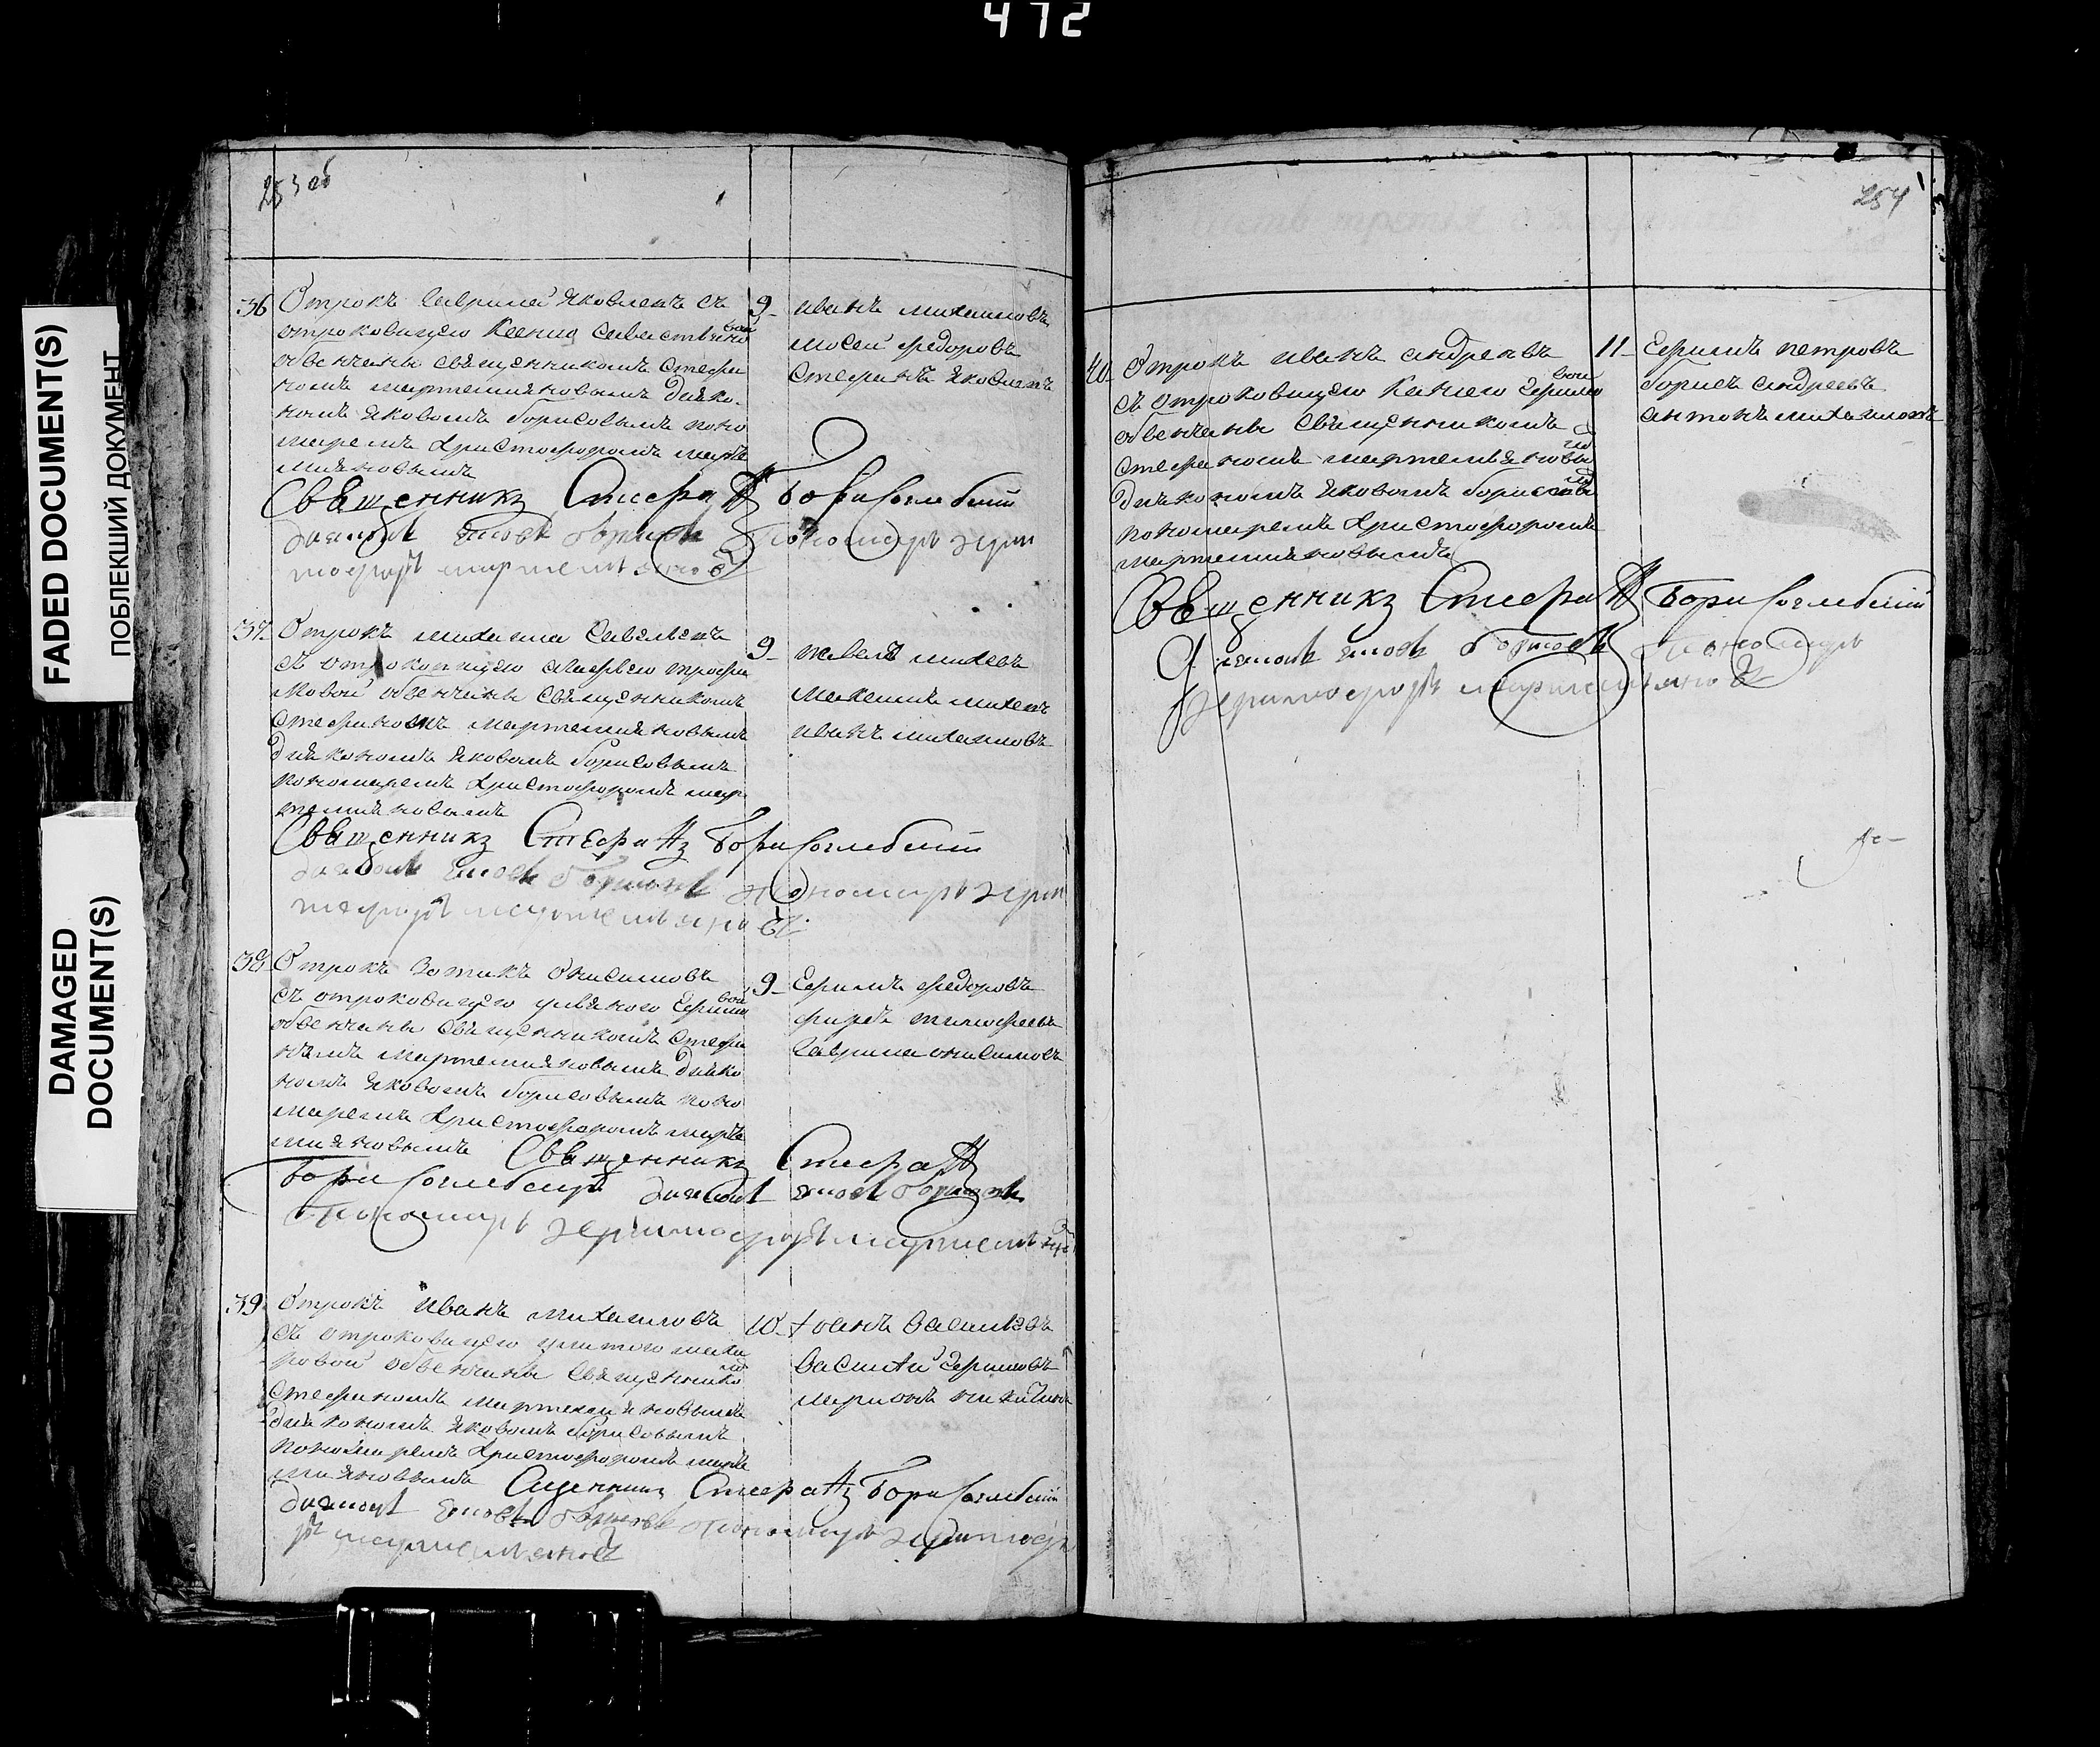 472
FADED DOCUMENT(S)
ПОБЛЕКШИЙ ДОКУМЕНТ
DAMAGED
DOCUMENT(S)
253 об
36 Отрокъ Гаврила Яковлевъ съ
отроковицею Ксения Савастьяно
вой
обвенчаны священникомъ Стефа
номъ мартемияновымъ Дьяко
номъ Яковомъ борисовымъ поно
маремъ Христофоромъ марте
мияновымъ
9 иванъ михаиловъ
мосей федоровъ
Стефанъ Яковлевъ
Священникъ Стефанъ Борисоглебский
диаконъ Яковъ борисовъ Пономарь Хри
тофоръ мартемьяновъ
37 Отрокъ михаила Савельевъ
съ отроковицею трофи
мовой обвенчаны священникомъ
Стефаномъ мартемияновымъ
Дьякономъ Яковомъ борисовымъ
пономаремъ Христофоромъ мар
темияновымъ
9 михеевъ
михеевъ
иванъ михаиловъ
Священникъ Стефанъ Борисоглебский
диаконъ Яковъ борисовъ пономарь Хри
тофоръ мартемьяновъ
38 Отрокъ Зотикъ Онисимовъ
съ отроковицею ульяною Ефрим
вой
обвенчаны священникомъ Стефа
номъ мартемияновымъ Дьяко
номъ Яковомъ борисовымъ поно
маремъ Христофоромъ марте
мияновымъ
9 Ефримъ федоровъ
тимофеевъ
Гаврила онисимовъ
Священникъ Стефанъ
Борисоглебский диаконъ Яковъ борисовъ
Пономарь Хритофоръ мартемьяно
39 Отрокъ Иванъ Михаиловъ
съ отроковицею
обвенчаны священнико
мъ
Стефаномъ мартемияновымъ
Дьякономъ Яковомъ борисовымъ
пономаремъ Христофоромъ марте
мияновымъ
10 Василевъ
Василий Ефримовъ
никитинъ
Сщенникъ Стефанъ Борисоглебский
диаконъ Яковъ борисовъ пономарь Хритофо
ръ мартемьяновъ
254
40 Отрокъ иванъ андреевъ
съ отроковицею Ефримо
вой
обвенчаны священникомъ
Стефаномъ мартемьяновы
мъ
Дьякономъ Яковомъ борисовы
мъ
пономаремъ Христофоромъ
мартемияновымъ
11 Ефримъ петровъ
борисъ андреевъ
антонъ михаиловъ
Священникъ Стефанъ Борисоглебский
Диаконъ Яковъ борисовъ Пономарь
Хритофоръ мартемьяновъ